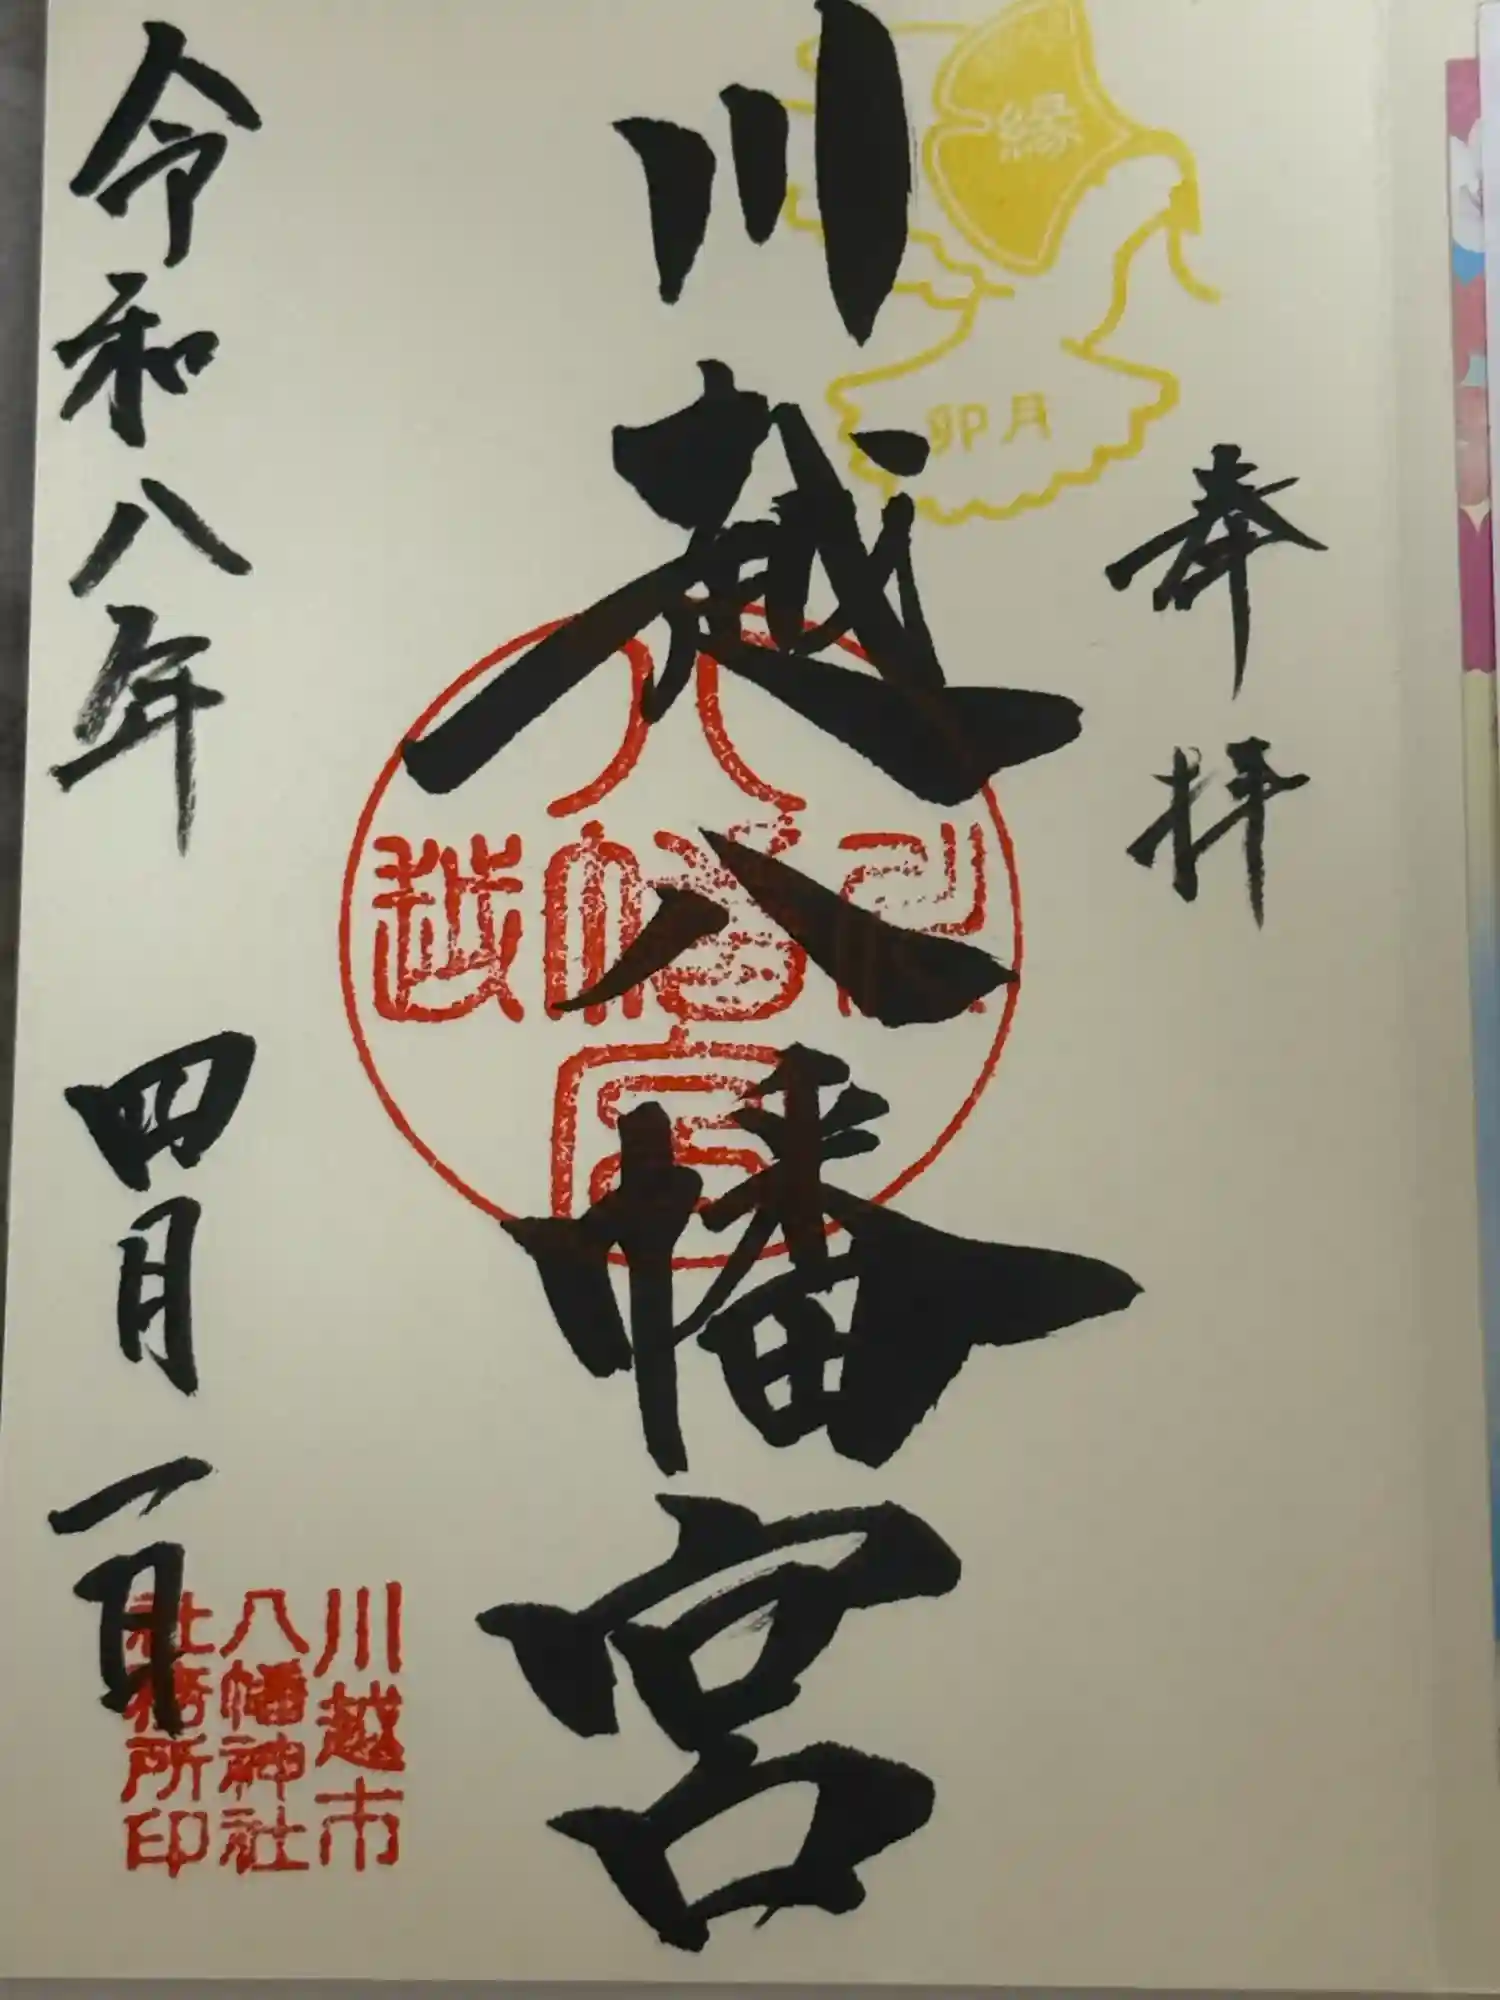 奉拝
縁
卯月
川越八幡宮
八
川幡越
宮
令和八年 四月一日
川越市
八幡神社
社務所印